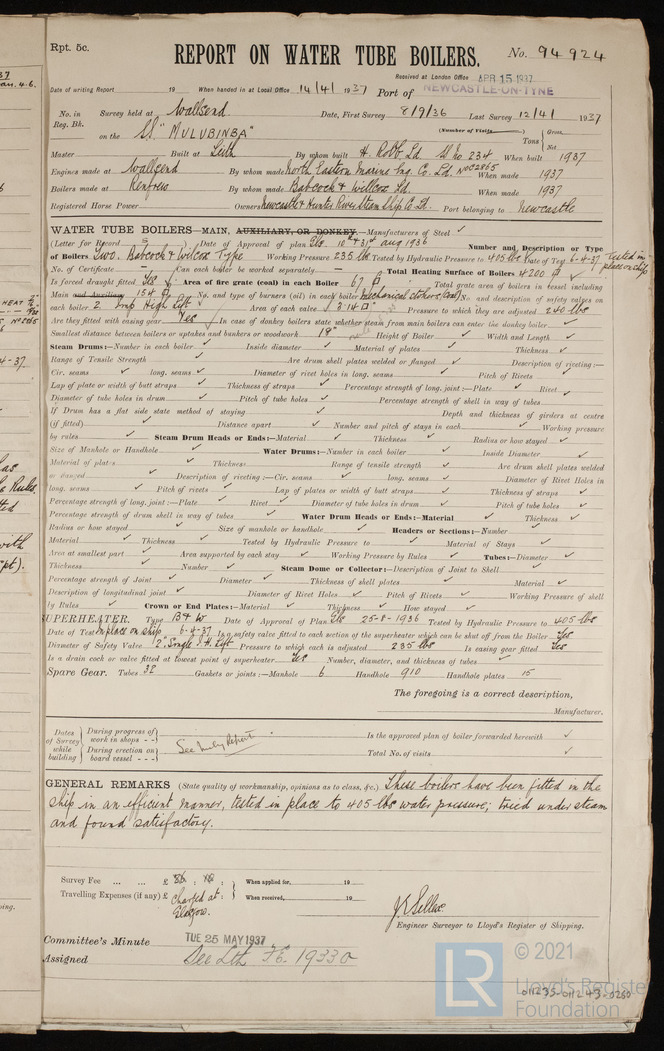 Rpt. 5c.
REPORT ON WATER TUBE BOILERS. No. 94924
Received at London Office APR 15 1937
Date of writing Report 19 When handed in at Local Office 14/4/1937 Port of NEWCASTLE-ON-TYNE
No. in Reg. Bk. Survey held at Wallsend Date, First Survey 8/9/36 Last Survey 12/4/1937
on the SS "MULUBINBA" (Number of Visits) Tons Gross Net
Master Built at Leith By whom built H. Robb Ld. No. 234 When built 1937
Engines made at Wallsend By whom made North Eastern Marine Eng. Co. Ld. No 2865 When made 1937
Boilers made at Renfrew By whom made Babcock & Wilcox Ld. When made 1937
Registered Horse Power Owners Newcastle & Hunter River Steam Ship Co Ld. Port belonging to Newcastle
WATER TUBE BOILERS—MAIN, AUXILIARY, OR DONKEY.—Manufacturers of Steel ✓
(Letter for Record S) Date of Approval of plan 10th & 31st Aug 1936 Number and Description or Type
of Boilers Two. Babcock & Wilcox Type Working Pressure 235 lb Tested by Hydraulic Pressure to 405 lbs Date of Test 6-4-37 Tested in place on ship
No. of Certificate Can each boiler be worked separately Total Heating Surface of Boilers 4200
Is forced draught fitted Yes Area of fire grate (coal) in each Boiler 67 Total grate area of boilers in vessel including
Main and Auxiliary 134 No. and type of burners (oil) in each boiler Mechanical stokers (coal) No. and description of safety valves on
each boiler 2 Imp High Lift Area of each valve 3.14 Pressure to which they are adjusted 240 lbs
Are they fitted with easing gear Yes In case of donkey boilers state whether steam from main boilers can enter the donkey boiler ✓
Smallest distance between boilers or uptakes and bunkers or woodwork 18" Height of Boiler ✓ Width and Length ✓
Steam Drums:—Number in each boiler ✓ Inside diameter ✓ Material of plates ✓ Thickness ✓
Range of Tensile Strength ✓ Are drum shell plates welded or flanged ✓ Description of riveting:—
Cir. seams ✓ long. seams ✓ Diameter of rivet holes in long. seams ✓ Pitch of Rivets ✓
Lap of plate or width of butt straps ✓ Thickness of straps ✓ Percentage strength of long. joint:—Plate ✓ Rivet ✓
Diameter of tube holes in drum ✓ Pitch of tube holes ✓ Percentage strength of shell in way of tubes ✓
If Drum has a flat side state method of staying ✓ Depth and thickness of girders at centre
(if fitted) ✓ Distance apart ✓ Number and pitch of stays in each ✓ Working pressure
by rules ✓ Steam Drum Heads or Ends:—Material ✓ Thickness ✓ Radius or how stayed ✓
Size of Manhole or Handhole ✓ Water Drums:—Number in each boiler ✓ Inside Diameter ✓
Material of plates ✓ Thickness ✓ Range of tensile strength ✓ Are drum shell plates welded
or flanged ✓ Description of riveting:—Cir. seams ✓ long. seams ✓ Diameter of Rivet Holes in
long. seams ✓ Pitch of rivets ✓ Lap of plates or width of butt straps ✓ Thickness of straps ✓
Percentage strength of long. joint:—Plate ✓ Rivet ✓ Diameter of tube holes in drum ✓ Pitch of tube holes ✓
Percentage strength of drum shell in way of tubes ✓ Water Drum Heads or Ends:—Material ✓ Thickness ✓
Radius or how stayed ✓ Size of manhole or handhole ✓ Headers or Sections:—Number ✓
Material ✓ Thickness ✓ Tested by Hydraulic Pressure to ✓ Material of Stays ✓
Area at smallest part ✓ Area supported by each stay ✓ Working Pressure by Rules ✓ Tubes:—Diameter ✓
Thickness ✓ Number ✓ Steam Dome or Collector:—Description of Joint to Shell ✓
Percentage strength of Joint ✓ Diameter ✓ Thickness of shell plates ✓ Material ✓
Description of longitudinal joint ✓ Diameter of Rivet Holes ✓ Pitch of Rivets ✓ Working Pressure of shell
by Rules ✓ Crown or End Plates:—Material ✓ Thickness ✓ How stayed ✓
SUPERHEATER. Type B & W Date of Approval of Plan 25-8-1936 Tested by Hydraulic Pressure to 405 lbs
Date of Test In place on ship 6-4-37 Is a safety valve fitted to each section of the superheater which can be shut off from the Boiler Yes
Diameter of Safety Valve 2" Single I.H. Lift Pressure to which each is adjusted 235 lbs Is easing gear fitted Yes
Is a drain cock or valve fitted at lowest point of superheater Yes Number, diameter, and thickness of tubes ✓
Spare Gear. Tubes 32 Gaskets or joints:—Manhole 6 Handhole 910 Handhole plates 15
The foregoing is a correct description,
Manufacturer.
Dates of Survey while building During progress of work in shops - - Is the approved plan of boiler forwarded herewith ✓
During erection on board vessel - - - See Mchy Report Total No. of visits ✓
GENERAL REMARKS (State quality of workmanship, opinions as to class, &c.) These boilers have been fitted in the
ship in an efficient manner, tested in place to 405 lbs water pressure; tried under steam
and found satisfactory.
Survey Fee ... ... £ : : When applied for, 19
Travelling Expenses (if any) £ Charged at Glasgow. When received, 19
Engineer Surveyor to Lloyd's Register of Shipping.
Committee's Minute TUE 25 MAY 1937
Assigned See Lth F.E. 19330
© 2021
LR
Lloyd's Register
Foundation
011235-011243-0260